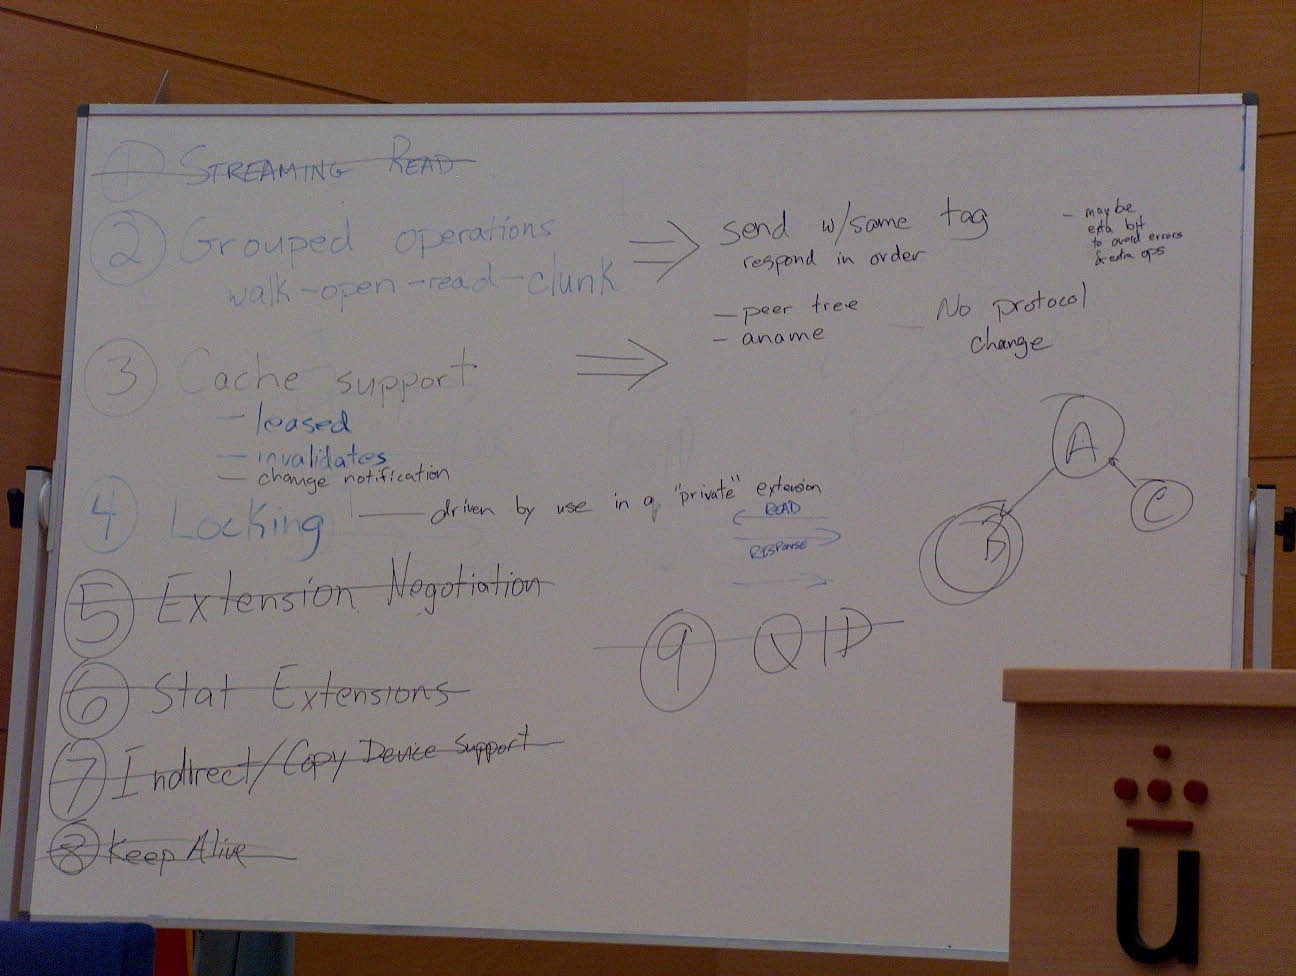 ① STREAMING READ
② Grouped operations
walk-open-read-clunk
⇒ send w/same tag
respond in order
- maybe
extra bit
to avoid errors
& extra ops
- peer tree
- aname
No protocol
change
③ Cache support ⇒
- leased
- invalidates
- change notification
④ Locking — driven by use in a "private" extension
READ
RESPONSE
A
B
C
⑤ Extension Negotiation
⑥ Stat Extensions
⑦ Indirect/Copy Device Support
⑧ Keep Alive
⑨ QID
u